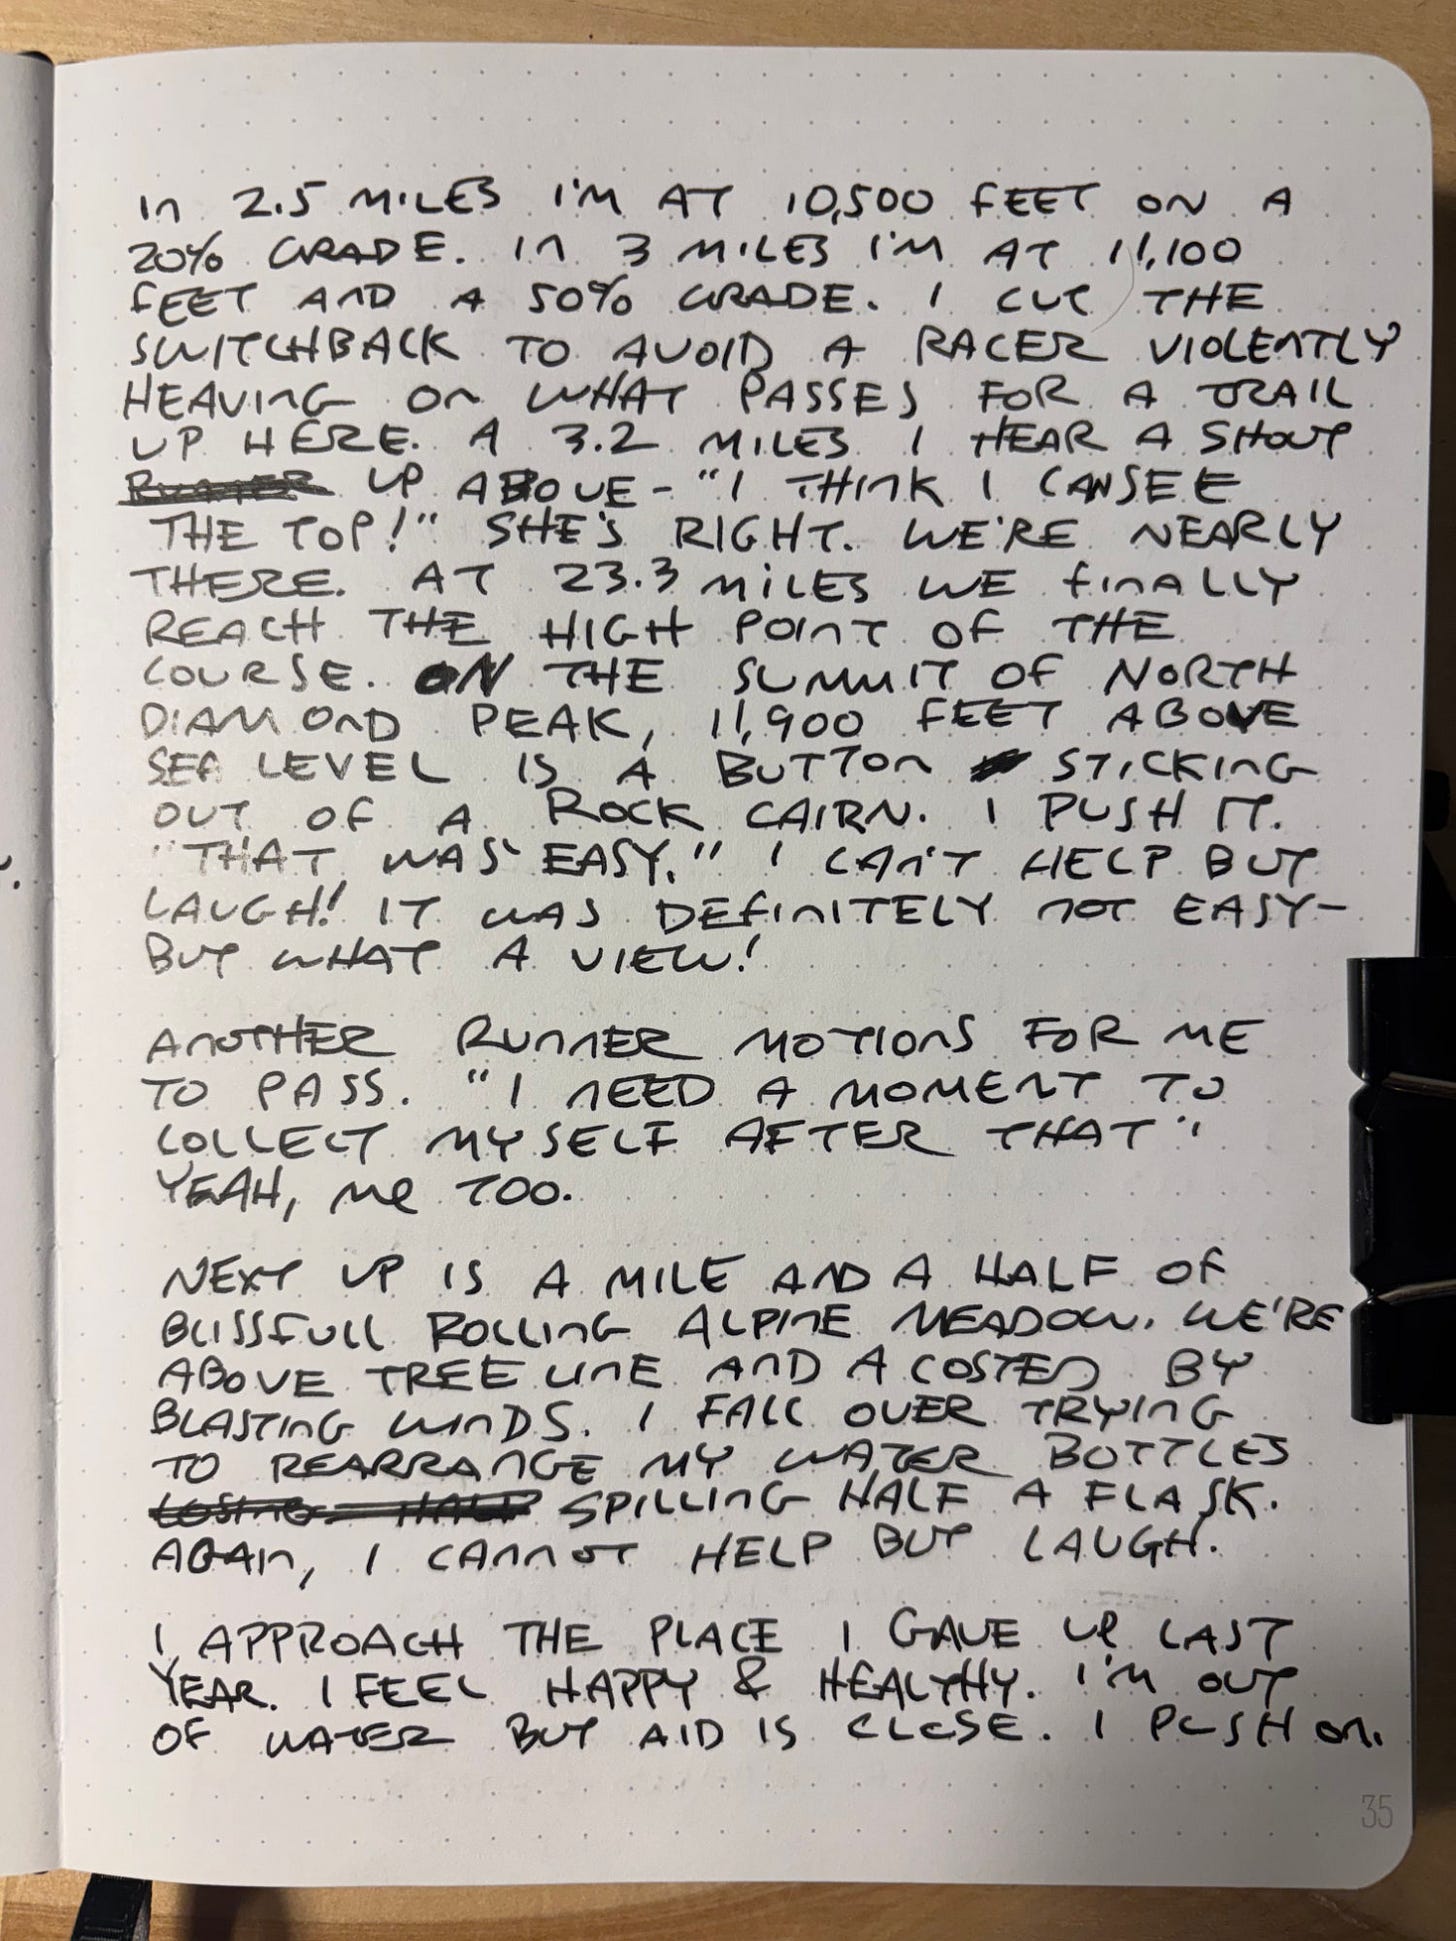 In 2.5 MILES I'M AT 10,500 FEET ON A
20% GRADE. In 3 MILES I'M AT 11,100
FEET AND A 50% GRADE. I CUT THE
SWITCHBACK TO AVOID A RACER VIOLENTLY
HEAVING On WHAT PASSES FOR A TRAIL
UP HERE. A 3.2 MILES I HEAR A SHOUT
RUNNER UP ABOVE - "I THINK I CAN SEE
THE TOP!" SHE'S RIGHT. WE'RE NEARLY
THERE. AT 23.3 MILES WE FINALLY
REACH THE HIGH POINT OF THE
COURSE. ON THE SUMMIT OF NORTH
DIAMOND PEAK, 11,900 FEET ABOVE
SEA LEVEL IS A BUTTON STICKING
OUT OF A ROCK CAIRN. I PUSH IT.
"THAT WAS EASY." I CAN'T HELP BUT
LAUGH! IT WAS DEFINITELY NOT EASY-
BUT WHAT A VIEW!
ANOTHER RUNNER MOTIONS FOR ME
TO PASS. "I NEED A MOMENT TO
COLLECT MYSELF AFTER THAT"
YEAH, Me TOO.
NEXT UP IS A MILE AND A HALF OF
BLISSFULL ROLLING ALPINE MEADOW. WE'RE
ABOVE TREE LINE AND ACOSTED BY
BLASTING WINDS. I FALL OVER TRYING
TO REARRANGE MY WATER BOTTLES
LOSING HALF SPILLING HALF A FLASK.
AGAIN, I CANNOT HELP BUT LAUGH.
I APPROACH THE PLACE I GAVE UP LAST
YEAR. I FEEL HAPPY & HEALTHY. I'M OUT
OF WATER BUT AID IS CLOSE. I PUSH On.
35